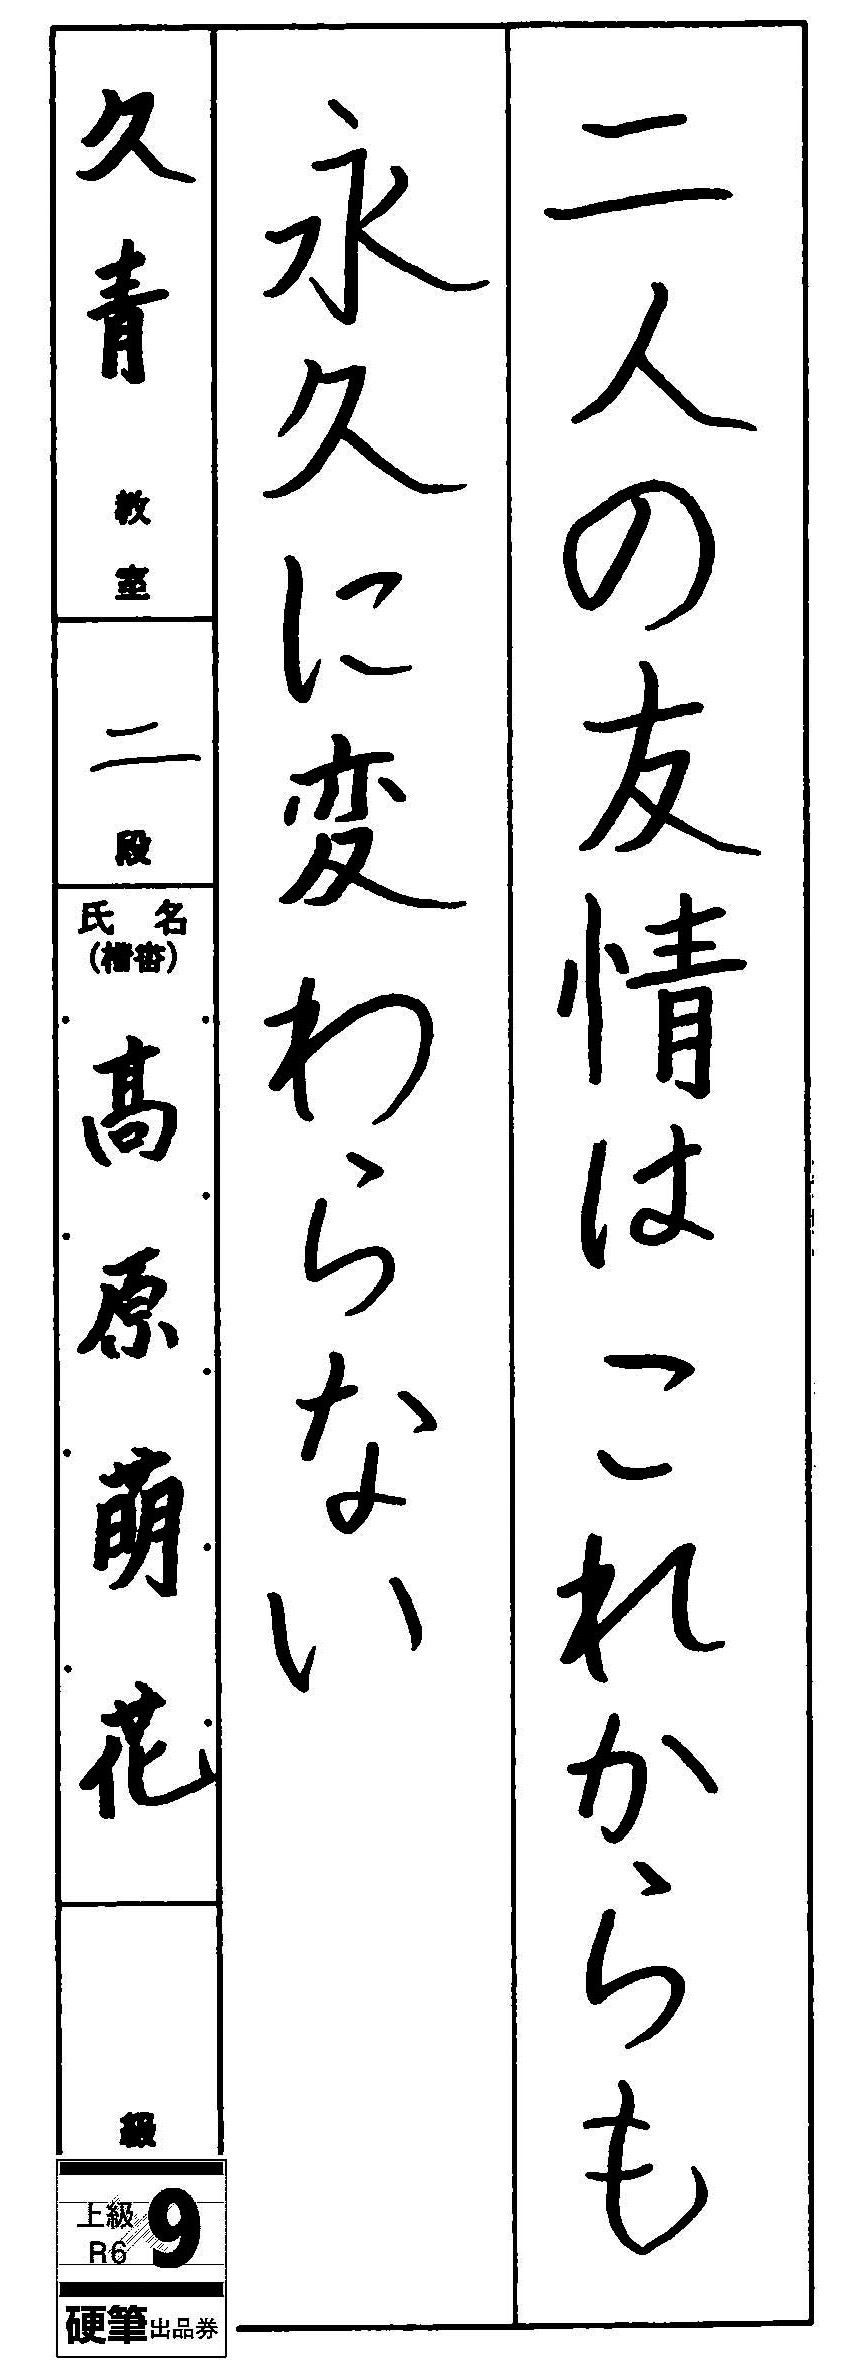 二人の友情はこれからも
永久に変わらない
久青 教室
二 段
氏名
(楷書)
高原萌花
級
上級 9
R6
硬筆出品券